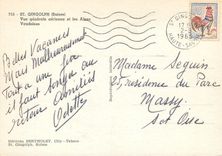 716 - ST. GINGOLPH (Suisse)
Vue générale aérienne et les Alpes
Vaudoises
ST GINGOLPH
1965
HAUTE-SAVOIE
Belles Vacances
Mais Malheureusement
Tout a une fin
et il faut songer au
retour Amitiés
Odette
Madame Seguin
21, résidence du Parc
Massy
S et Oise